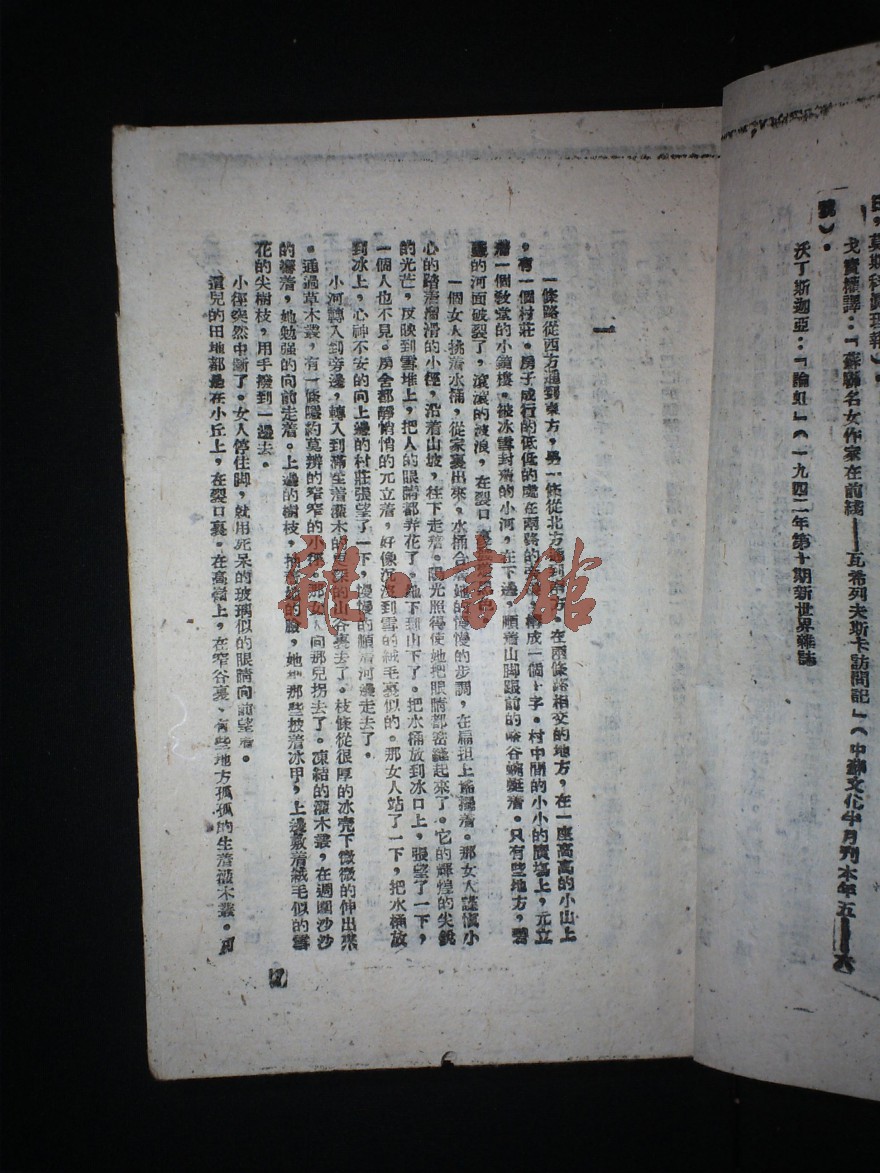 民，莫斯科眞理報）。
戈寶權譯：「蘇聯名女作家在前綫——瓦希列夫斯卡訪問記」（中蘇文化半月刊本年五——六
號）。
沃丁斯迦亞：「論虹」（一九四二年第十期新世界雜誌
一
一條路從西方通到東方，另一條從北方通到南方。在兩條路相交的地方，在一座高高的小山上
，有一個村莊。房子成行的低低的處在兩路的兩旁，構成一個十字。村中間的小小的廣塲上，兀立
着一個敎堂的小鐘樓。被冰雪封着的小河，在下邊，順着山脚跟前的峪谷蜿蜒着。只有些地方，碧
藍的河面破裂了，滾滾的波浪，在裂口裏
一個女人挑着水桶，從家裏出來。水桶合着她的慢慢的步調，在扁担上搖擺着。那女人謹愼小
心的踏着溜滑的小徑，沿着山坡，往下走着。陽光照得使她把眼睛都密縫起來了。它的輝煌的尖銳
的光芒，反映到雪堆上，把人的眼睛都弄花了。她下到山下了。把水桶放到冰口上，張望了一下，
一個人也不見。房舍都靜悄悄的兀立着，好像沉沒到雪的絨毛裏似的。那女人站了一下，把水桶放
到冰上，心神不安的向上邊的村莊張望了一下，慢慢的順着河邊走去了。
小河轉入到旁邊，轉入到滿生着灌木的更深的山谷裏去了。枝條從很厚的冰壳下微微的伸出來
。通過草木叢，有一條隱約莫辨的窄窄的小徑。那女人向那兒拐去了。凍結的灌木叢，在週圍沙沙
的響着，她勉强的向前走着。上邊的樹枝，抽着她的臉，她把那些披着冰甲，上邊敷着絨毛似的雪
花的尖樹枝，用手撥到一邊去。
小徑突然中斷了。女人停住脚，就用死呆的玻璃似的眼睛向前望着。
這兒的田地都是在小丘上，在裂口裏。在高嶺上，在窄谷裏，有些地方孤孤的生着灌木叢。可
龍·書館